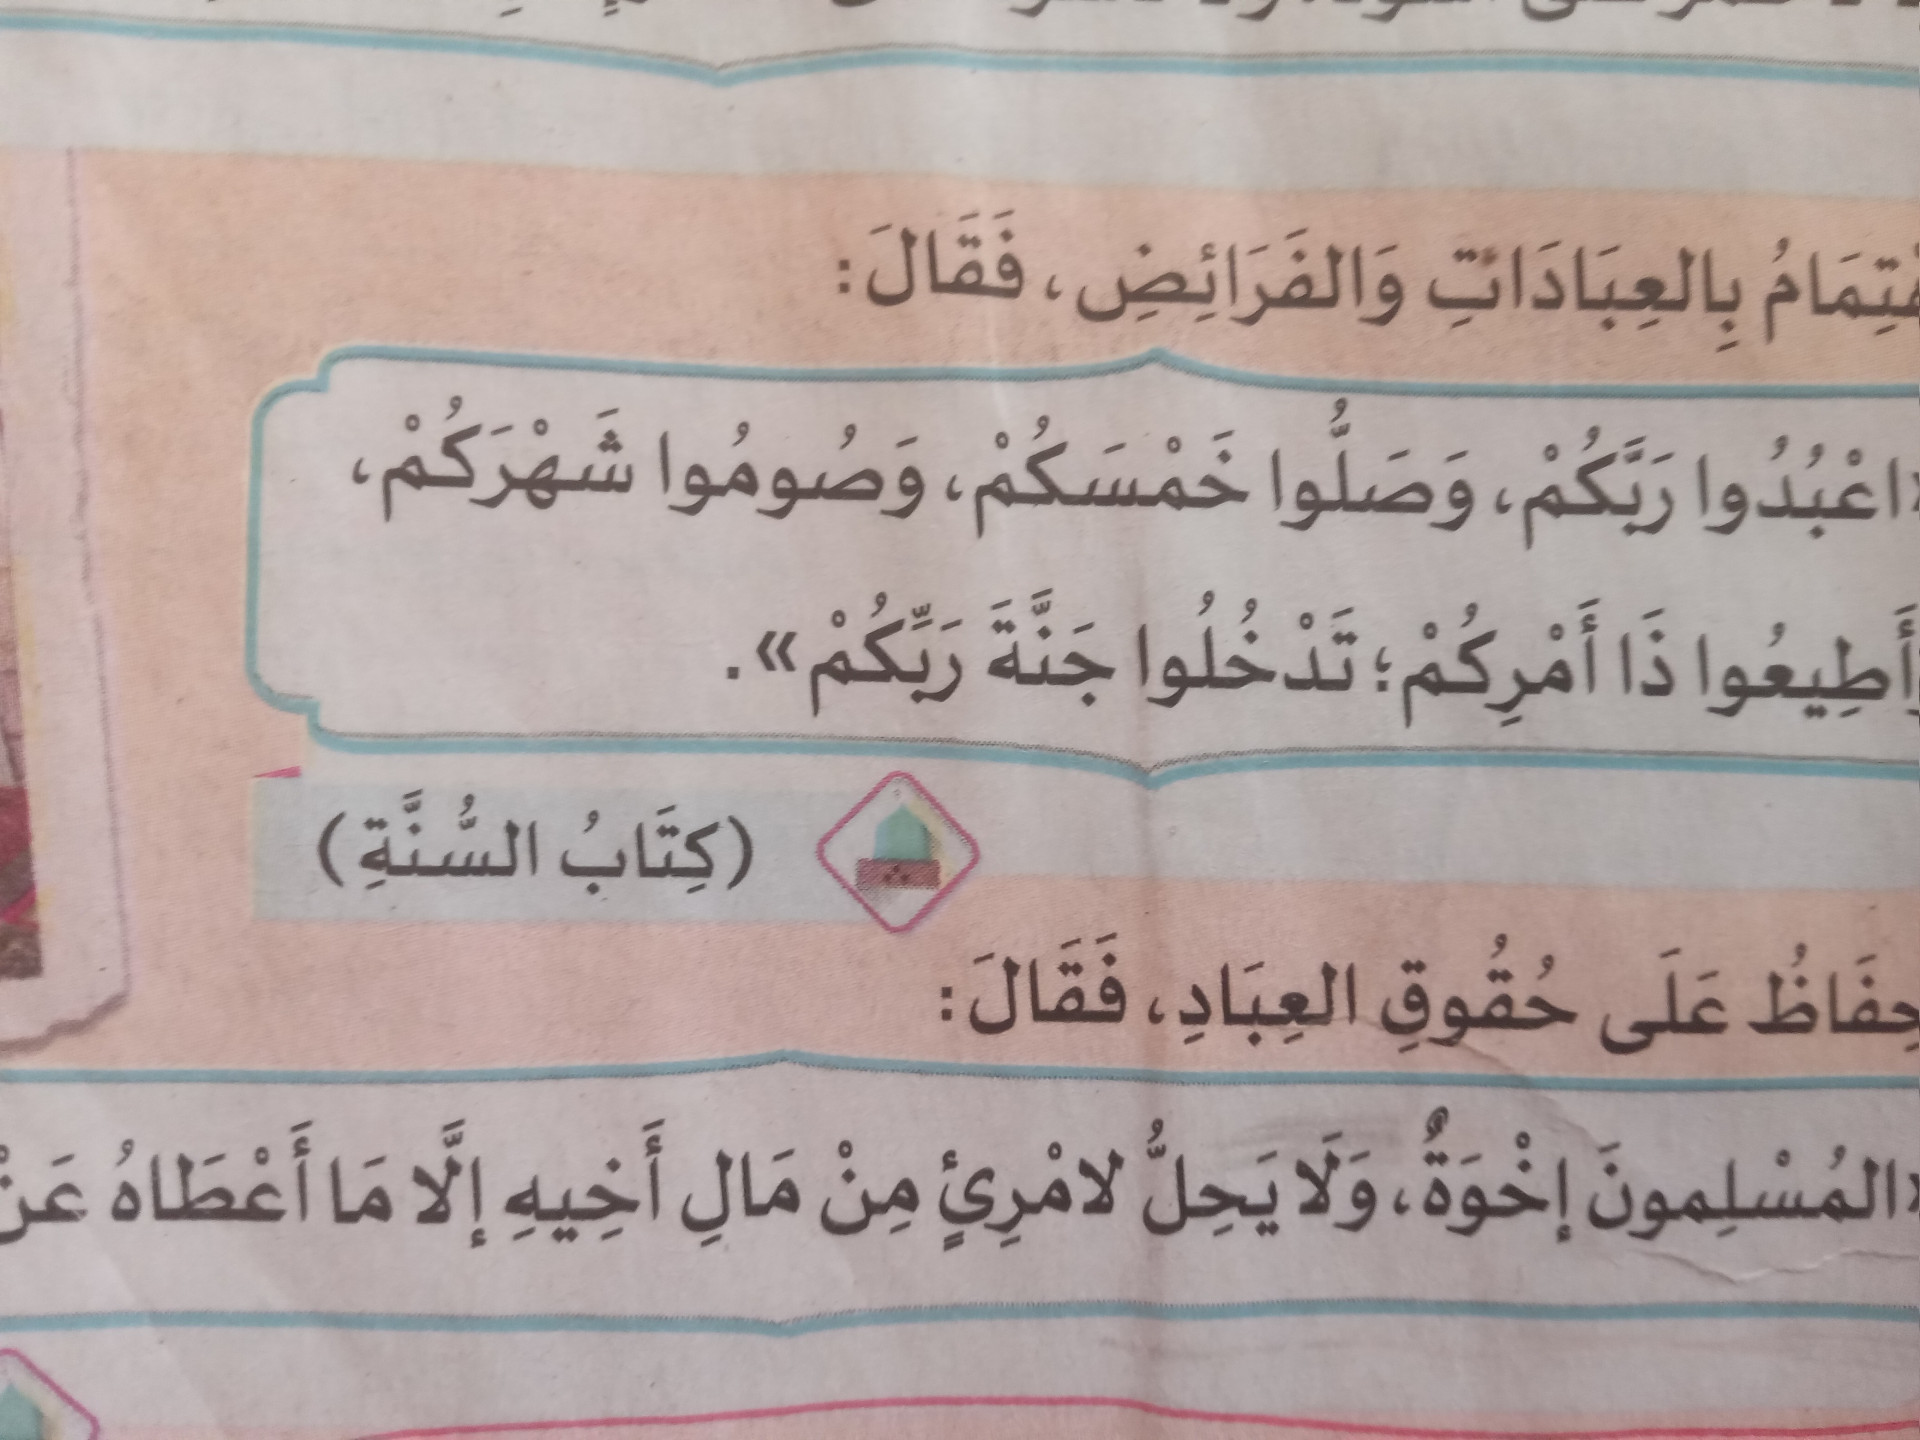 بِالعِبَادَاتِ وَالفَرَائِضِ، فَقَالَ:
«اعْبُدُوا رَبَّكُمْ، وَصَلُّوا خَمْسَكُمْ، وَصُومُوا شَهْرَكُمْ،
وَأَطِيعُوا ذَا أَمْرِكُمْ؛ تَدْخُلُوا جَنَّةَ رَبِّكُمْ».
(كِتَابُ السُّنَّةِ)
حِفَاظُ عَلَى حُقُوقِ العِبَادِ، فَقَالَ:
«المُسْلِمونَ إخْوَةٌ، وَلَا يَحِلُّ لامْرِئٍ مِنْ مَالِ أَخِيهِ إلَّا مَا أَعْطَاهُ عَنْ